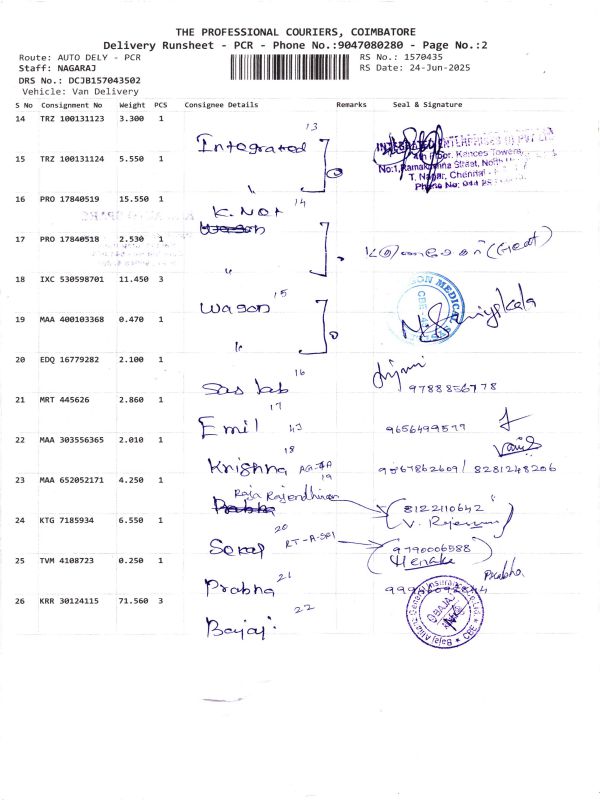 THE PROFESSIONAL COURIERS, COIMBATORE
Delivery Runsheet - PCR - Phone No.:9047080280 - Page No.:2
Route: AUTO DELY - PCR
RS No.: 1570435
Staff: NAGARAJ
RS Date: 24-Jun-2025
DRS No.: DCJB157043502
Vehicle: Van Delivery
S No Consignment No Weight PCS Consignee Details Remarks Seal & Signature
14 TRZ 100131123 3.300 1
Integrated 13
15 TRZ 100131124 5.550 1
"
No:1,Ramakrishna Street, North
T. Nagar, Chennai
16 PRO 17840519 15.550 1
K.NOA 14
Wason
17 PRO 17840518 2.530 1
" (Geat)
18 IXC 530598701 11.450 3
Wason 15
19 MAA 400103368 0.470 1
"
20 EDQ 16779282 2.100 1
Sas lab 16
9788856778
21 MRT 445626 2.860 1
17
Emil 43 9656499579
22 MAA 303556365 2.010 1
18
Krishna 9567862609/ 8281248206
19
23 MAA 652052171 4.250 1
Raja Rajendhiran
Prabha
8122110642
24 KTG 7185934 6.550 1
20
9790006588
25 TVM 4108723 0.250 1
Prabha 21
Prabha
26 KRR 30124115 71.560 3
Bajaj 22
BAJAJ